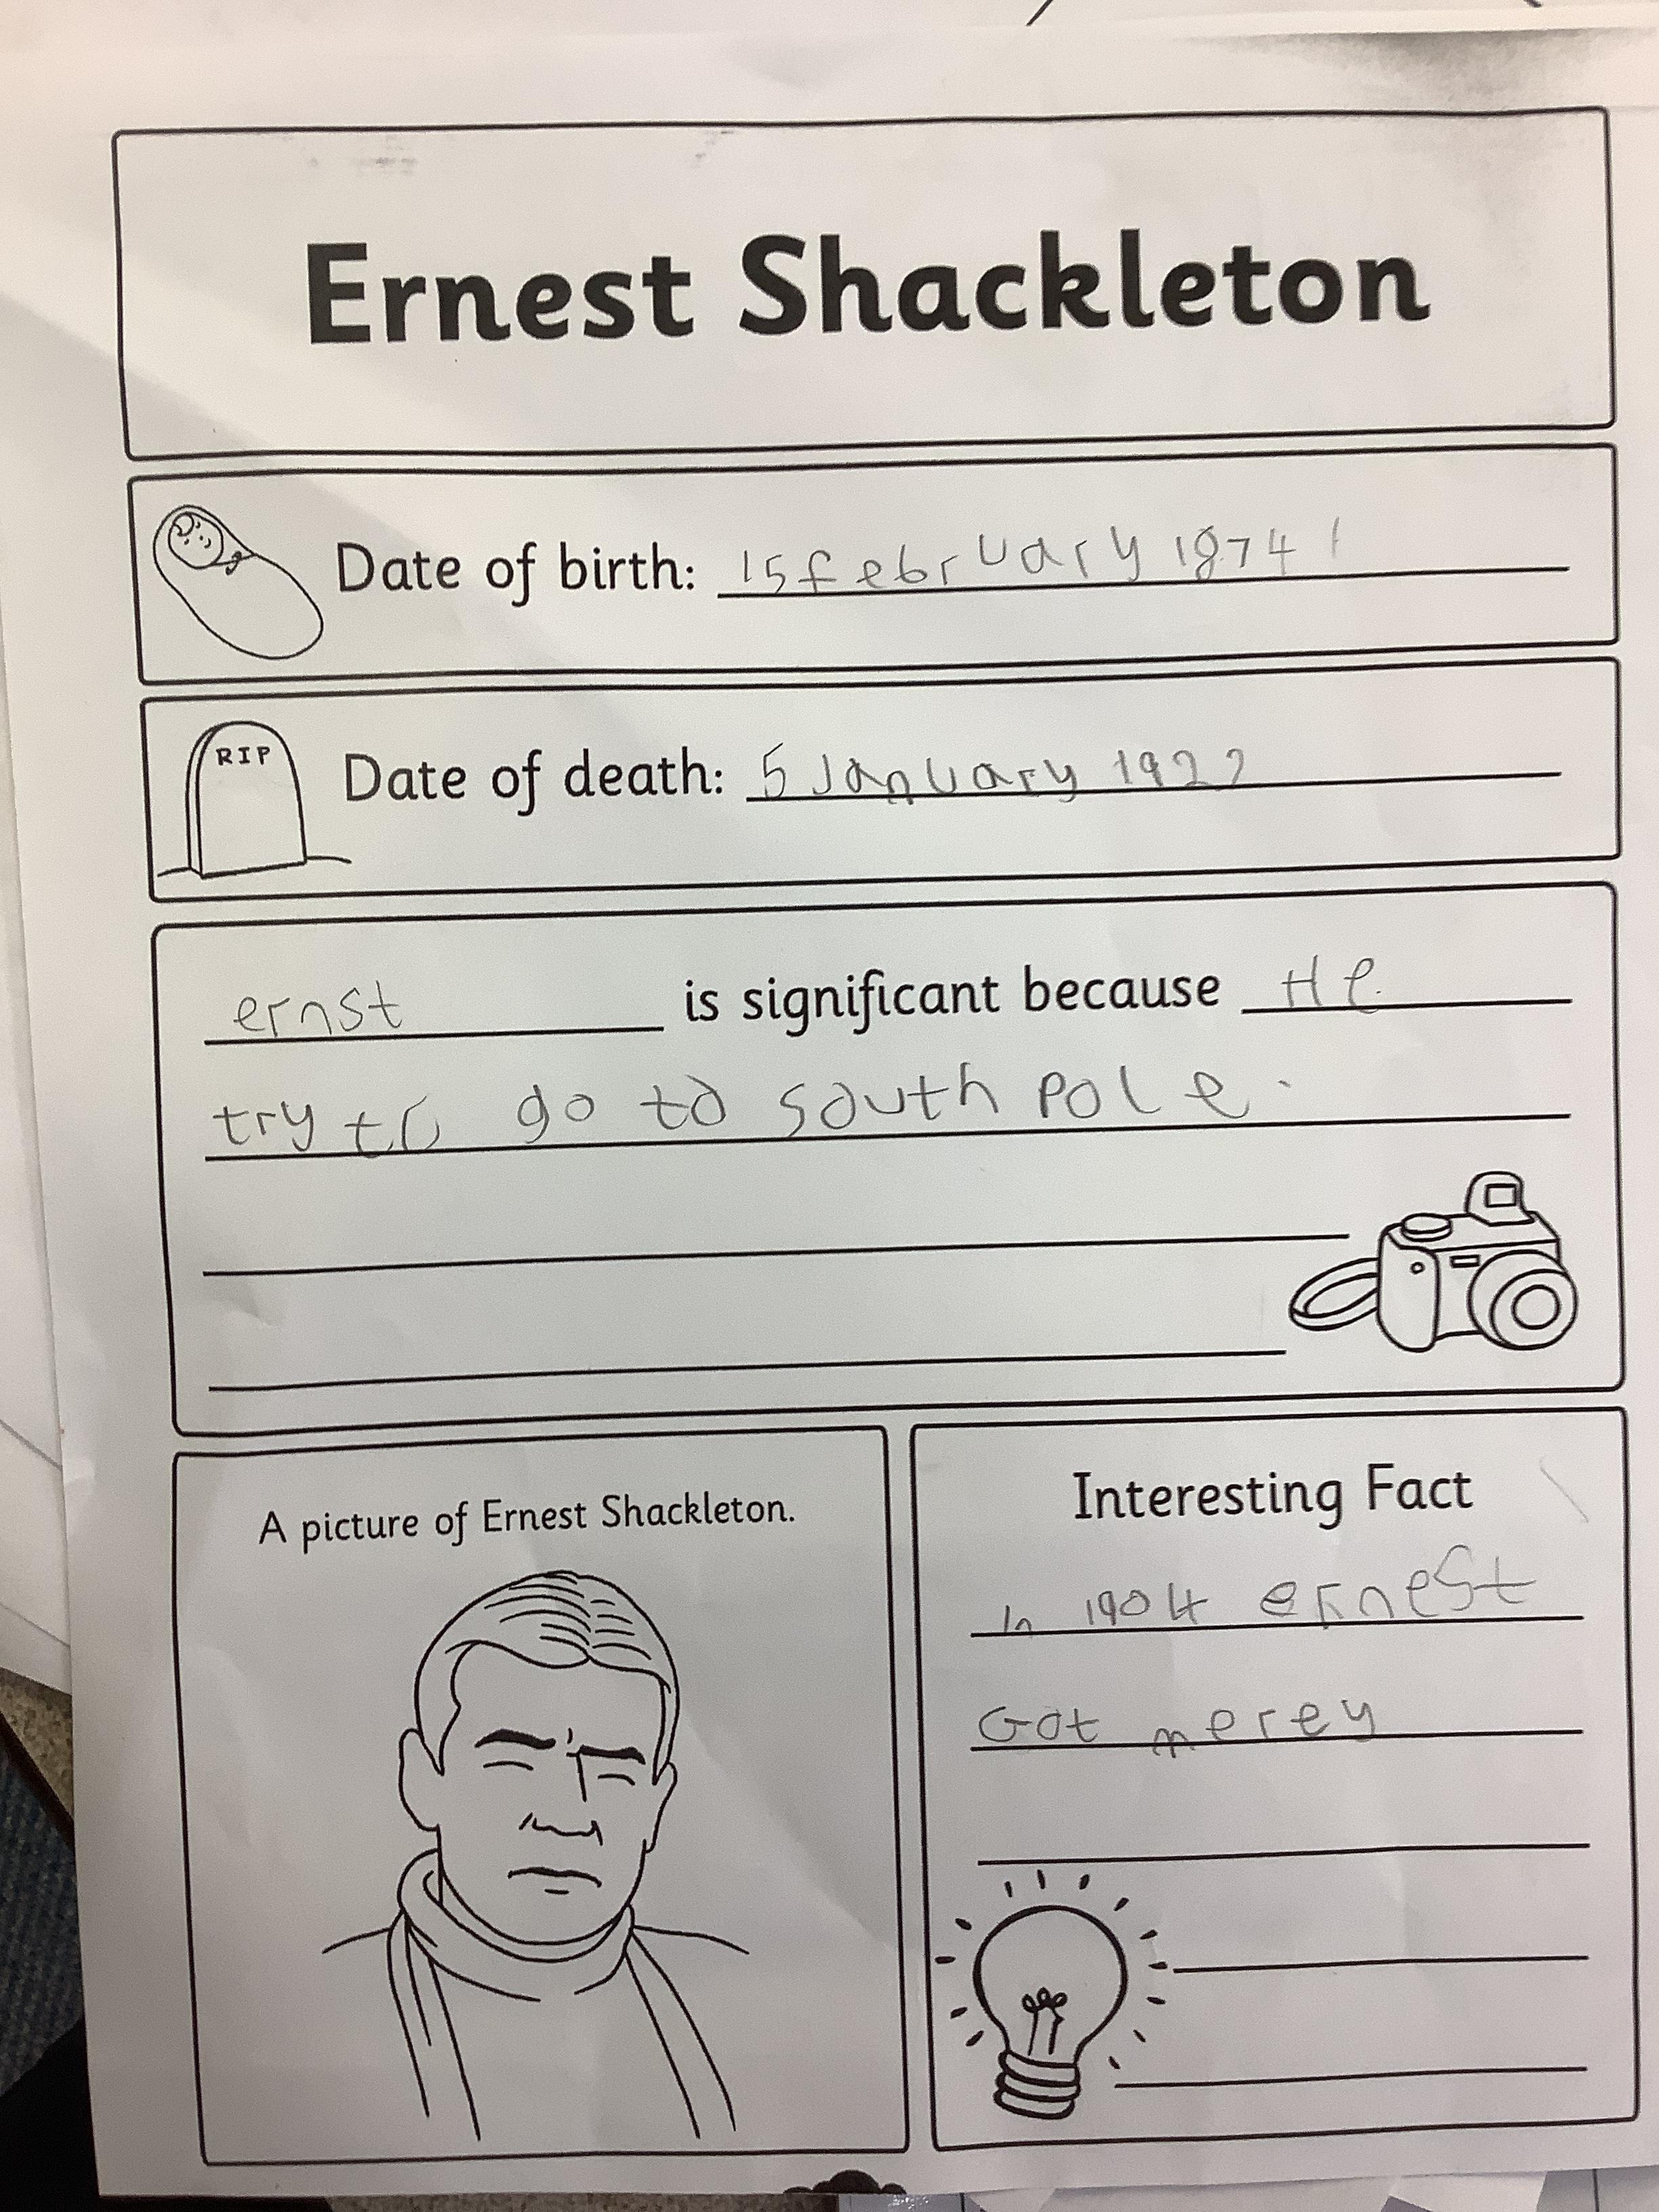 Ernest Shackleton
Date of birth: 15 february 1874
RIP
Date of death: 5 January 1922
ernst is significant because He
try to go to south pole.
A picture of Ernest Shackleton.
Interesting Fact
In 1904 ernest
Got merey